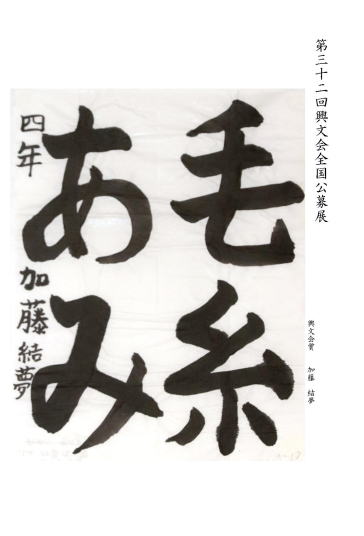 第三十二回興文会全国公募展
興文会賞　加藤　結夢
毛糸
あみ
四年　加藤結夢